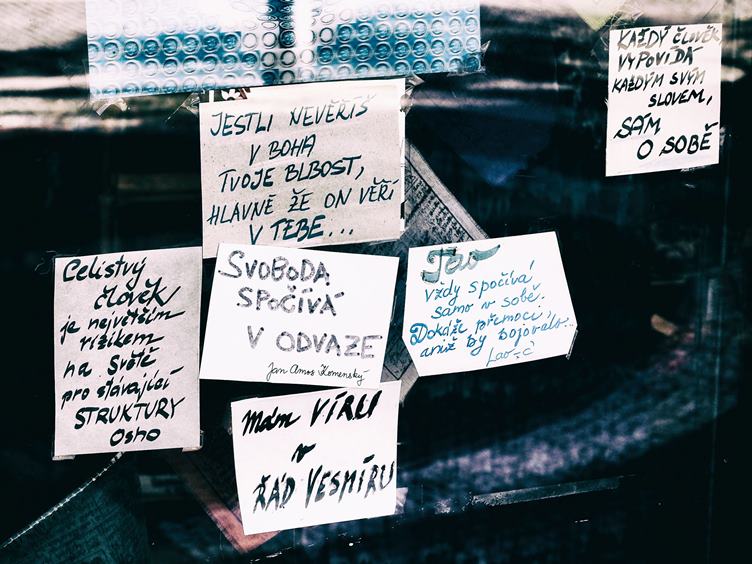 JESTLI NEVĚŘÍŠ
V BOHA
TVOJE BLBOST,
HLAVNĚ ŽE ON VĚŘÍ
V TEBE...
KAŽDÝ ČLOVĚK
VYPOVÍDÁ
KAŽDÝM SVÝM
SLOVEM,
SÁM
O SOBĚ
Celistvý
člověk
je největším
rizikem
na světě
pro stávající
STRUKTURY
Osho
SVOBODA
SPOČÍVÁ
V ODVAZE
Jan Amos Komenský
Tao
vždy spočívá
samo v sobě.
Dokáže přemoci,
aniž by bojovalo...
Lao-c'
Mám VÍRU
v
ŘÁD VESMÍRU